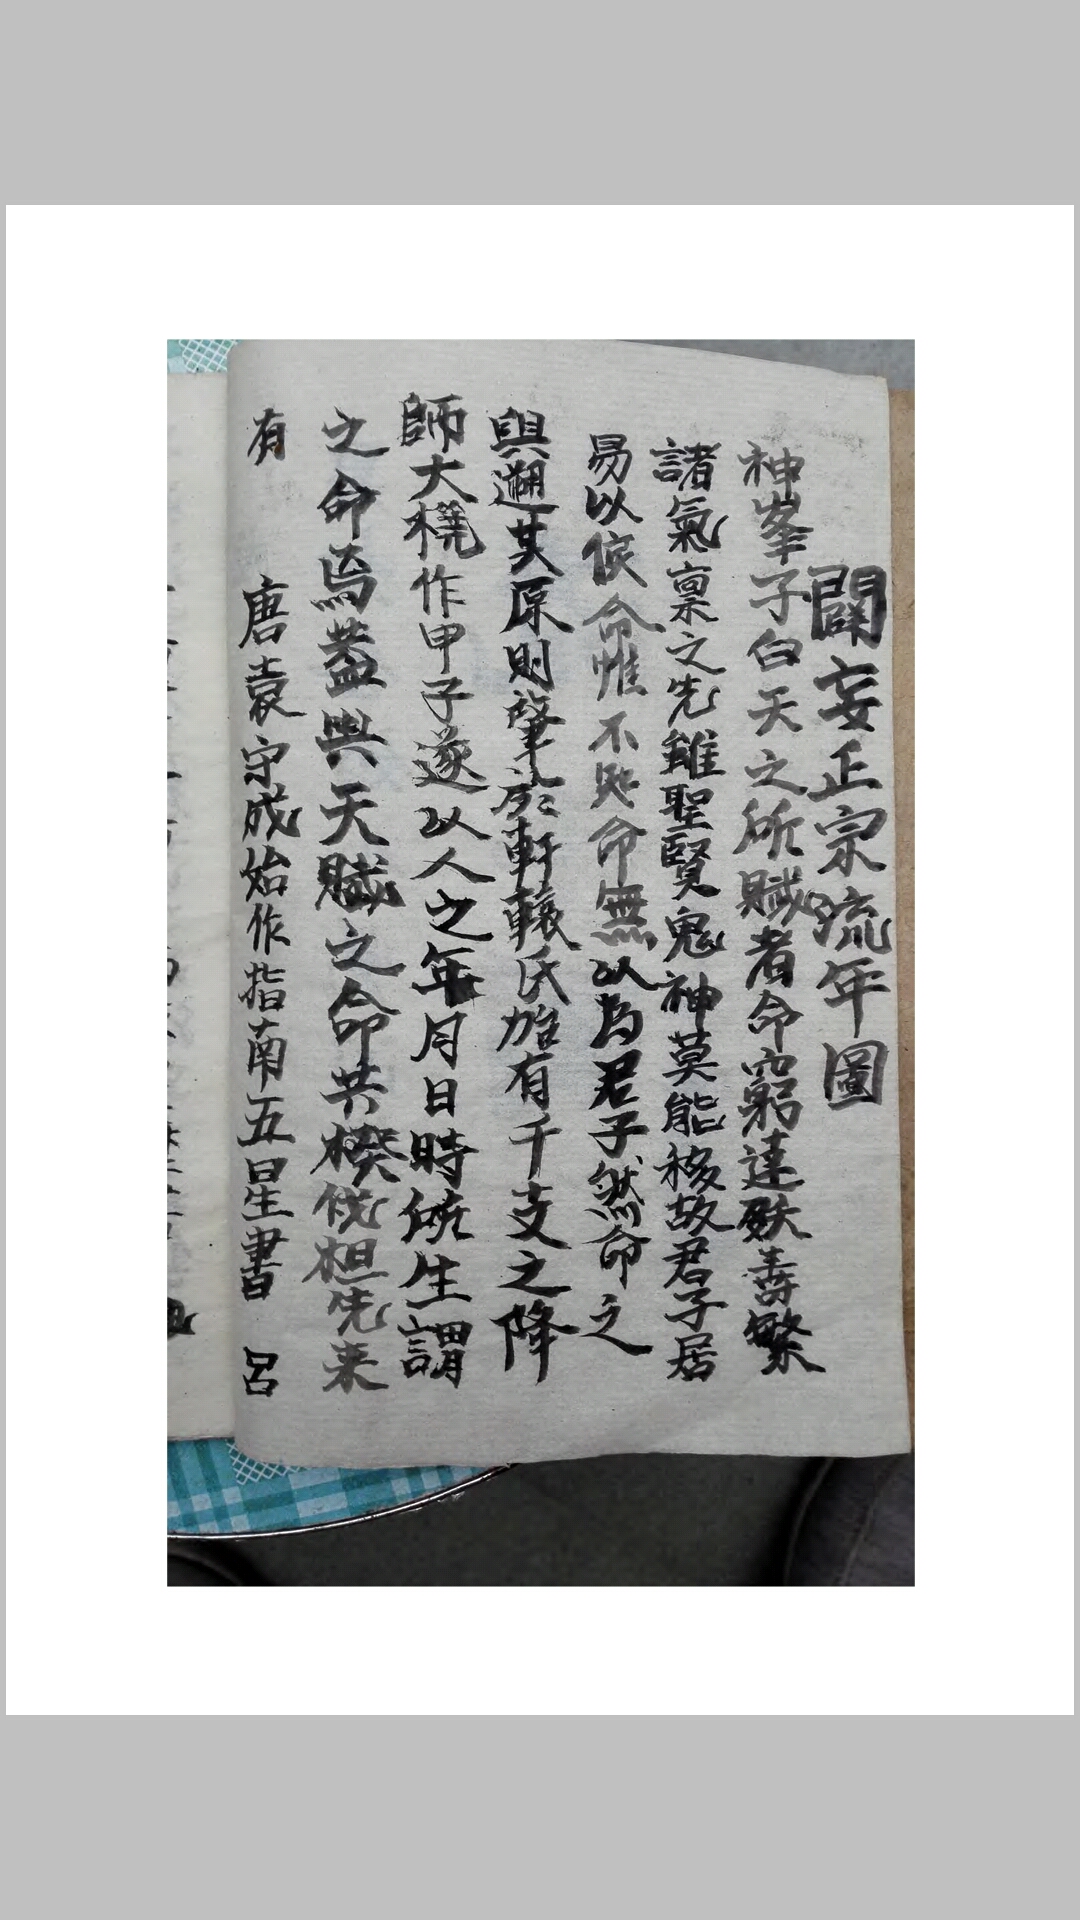 闢妄正宗流年圖
神峯子曰天之所賦者命窮達殀壽繁
諸氣禀之先雖聖賢鬼神莫能移故君子居
易以俟命惟不知命無以為君子然命之
與遡其原則肇於軒轅氏旌有干支之降
師大橈作甲子遂以人之年月日時所生謂
之命焉蓋與天賦之命共揆伐柤先来
有 唐袁守成始作指南五星書 呂